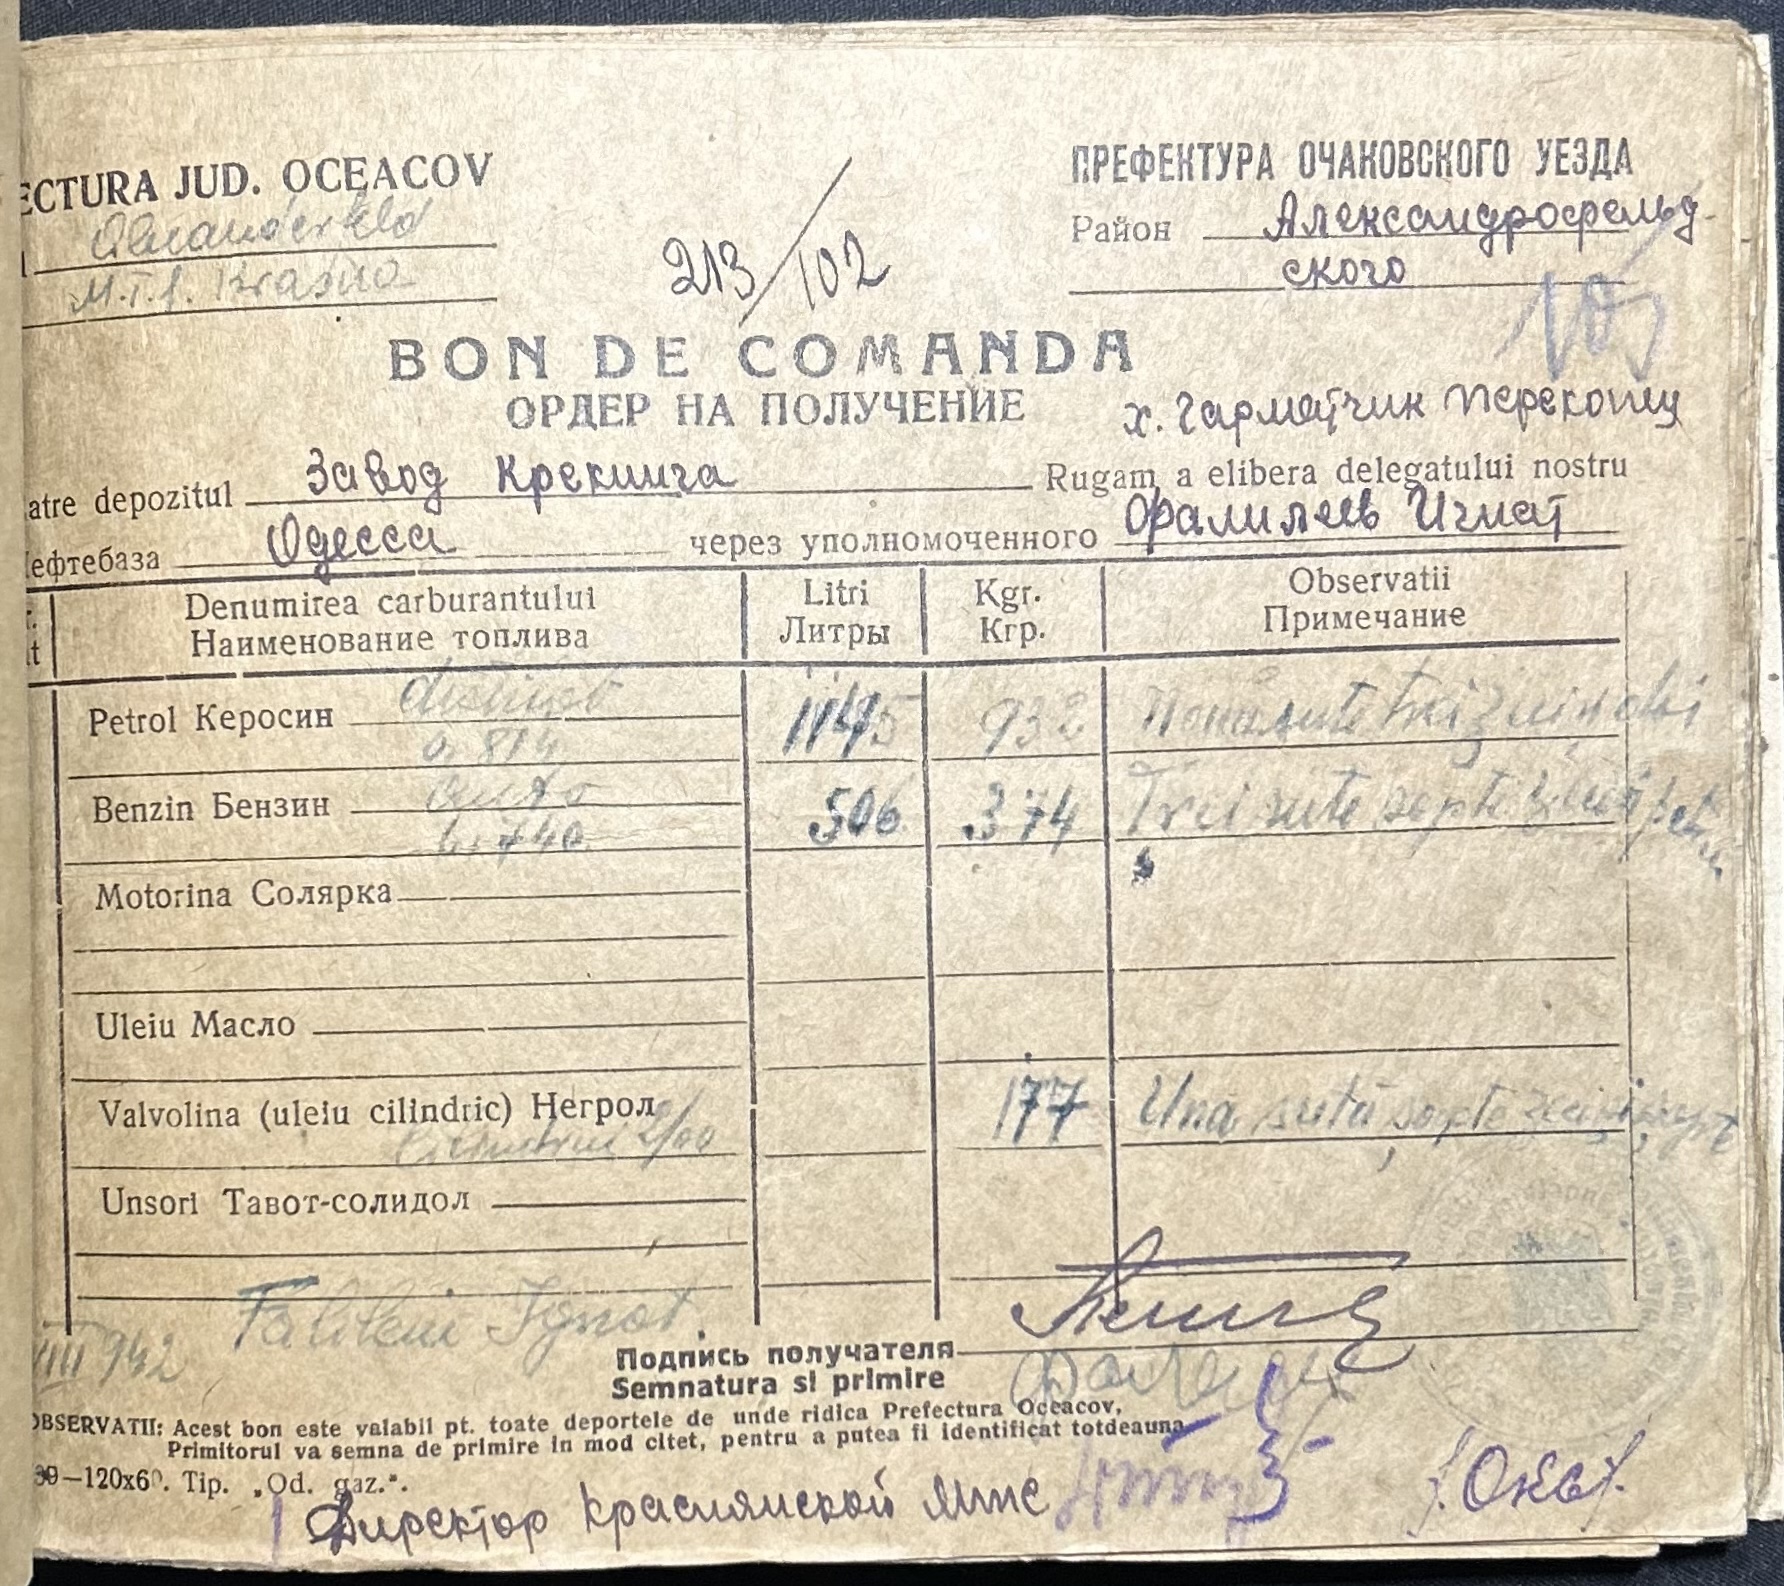 ECTURA JUD. OCEACOV
ПРЕФЕКТУРА ОЧАКОВСКОГО УЕЗДА
Район Александрофельд-
ского
M.T.S. Krasna
213/102
BON DE COMANDA
ОРДЕР НА ПОЛУЧЕНИЕ
х. Гарматчик
atre depozitul Завод Крекинга Rugam a elibera delegatului nostru
ефтебаза Одесса через уполномоченного Фалилеев Игнат
Denumirea carburantului Litri Kgr. Observatii
Наименование топлива Литры Кгр. Примечание
Petrol Керосин 1145 932 Nouă sute treizeci și doi
0,814
Benzin Бензин auto 506 374 Trei sute șapte zeci și patru
0,740
Motorina Солярка
Uleiu Масло
Valvolina (uleiu cilindric) Негрол 177 Una sută șapte zeci și șapte
Unsori Тавот-солидол
VIII 942 Falileiu Ignat
Подпись получателя
Semnatura si primire
OBSERVATII: Acest bon este valabil pt. toate deportele de unde ridica Prefectura Oceacov.
Primitorul va semna de primire in mod citet, pentru a putea fi identificat totdeauna
39—120x60. Tip. „Od. gaz.".
Директор Краснянской ЯМТС